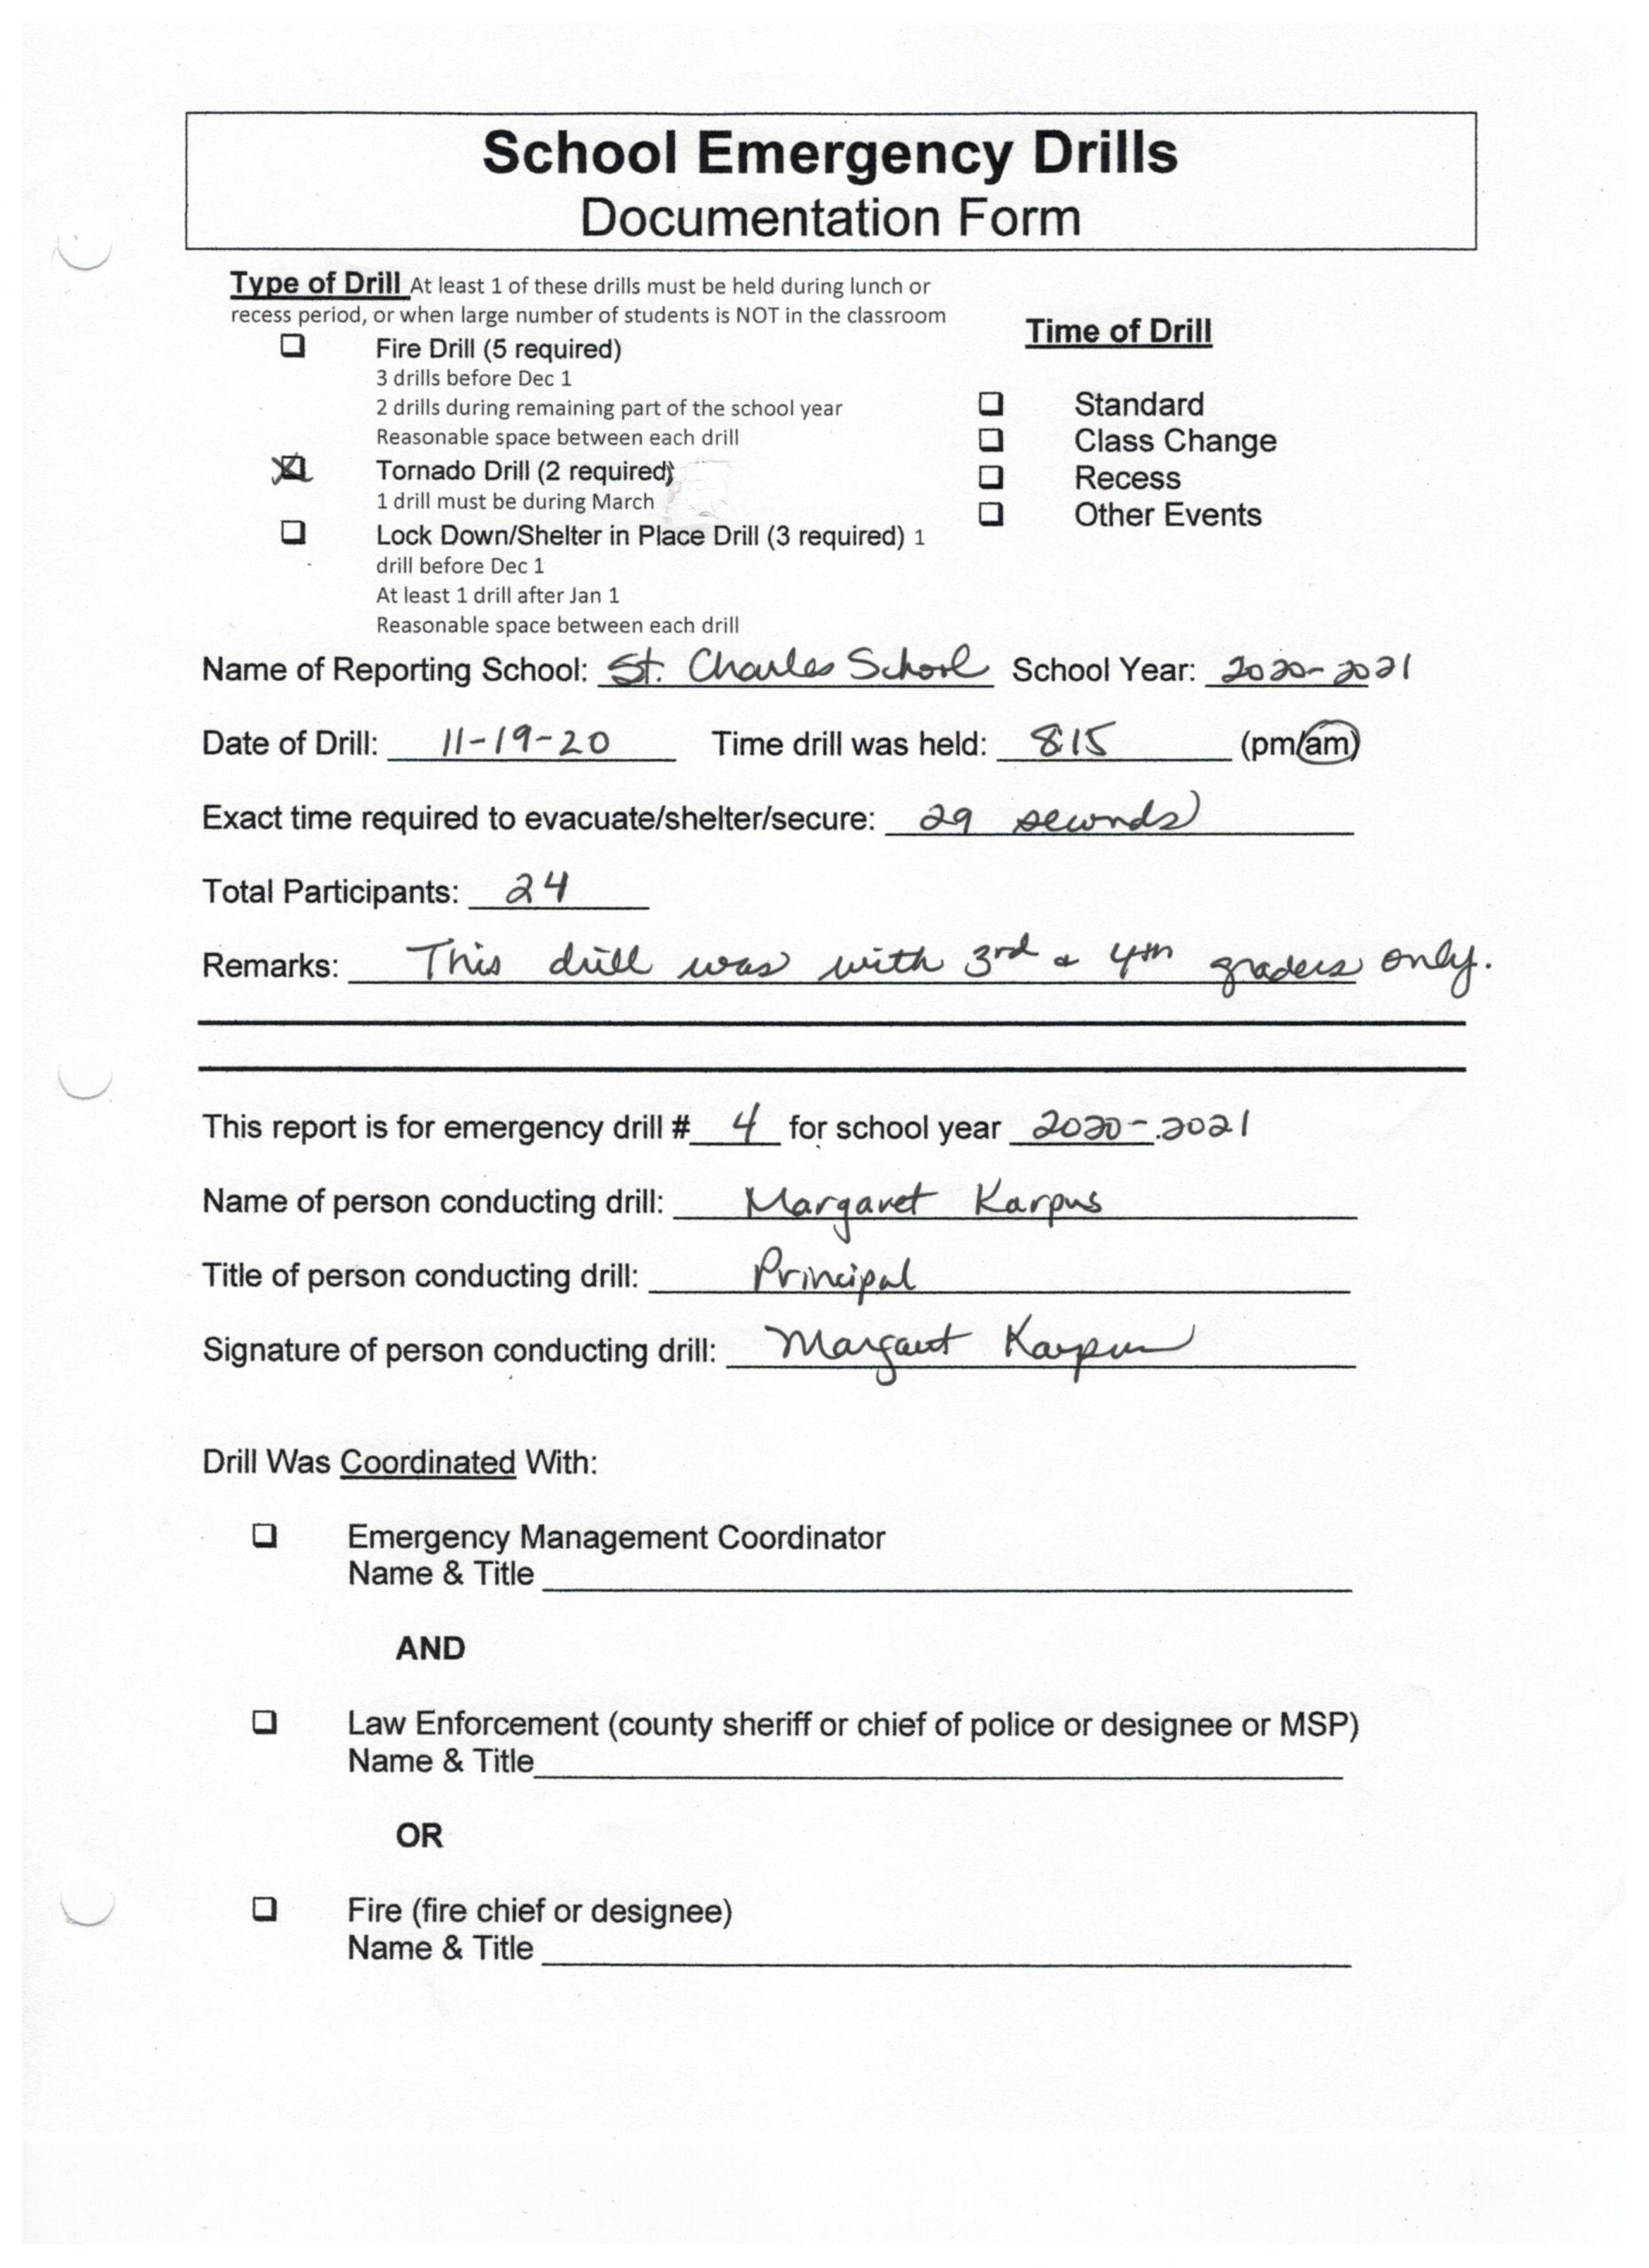 School Emergency Drills
Documentation Form
Type of Drill At least 1 of these drills must be held during lunch or
recess period, or when large number of students is NOT in the classroom
Fire Drill (5 required)
3 drills before Dec 1
2 drills during remaining part of the school year
Reasonable space between each drill
Tornado Drill (2 required)
1 drill must be during March
Lock Down/Shelter in Place Drill (3 required) 1
drill before Dec 1
At least 1 drill after Jan 1
Reasonable space between each drill
Time of Drill
Standard
Class Change
Recess
Other Events
Name of Reporting School: St. Charles School School Year: 2020-2021
Date of Drill: 11-19-20 Time drill was held: 8:15 (pm/am)
Exact time required to evacuate/shelter/secure: 29 seconds
Total Participants: 24
Remarks: This drill was with 3rd & 4th graders only.
This report is for emergency drill # 4 for school year 2020-2021
Name of person conducting drill: Margaret Karpus
Title of person conducting drill: Principal
Signature of person conducting drill: Margaret Karpus
Drill Was Coordinated With:
Emergency Management Coordinator
Name & Title
AND
Law Enforcement (county sheriff or chief of police or designee or MSP)
Name & Title
OR
Fire (fire chief or designee)
Name & Title